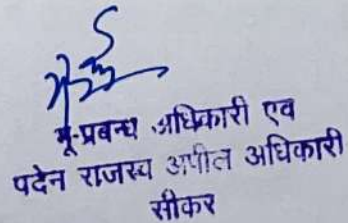 भू-प्रबन्ध अधिकारी एव
पदेन राजस्व अपील अधिकारी
सीकर